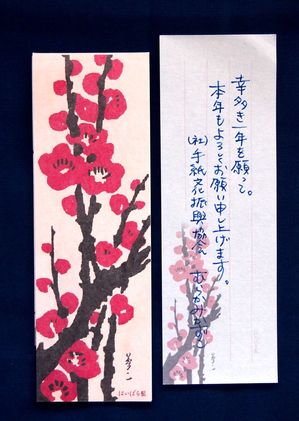 幸多き一年を願って。
本年もよろしくお願い申し上げます。
(社)手紙文化振興協会 むらかみかずこ
はいばら製